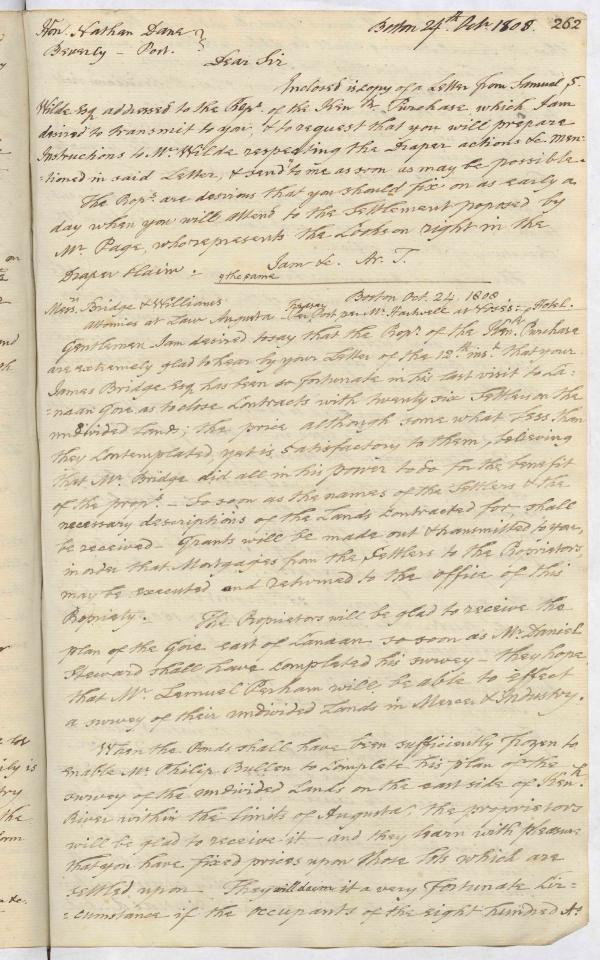 Hon. Nathan Dane
Boston 24th Octr. 1808. 262
Beverly - Post.
Dear Sir
Inclosed is copy of a Letter from Samuel S.
Wilde Esq. addressed to the Propr. of the Ken Rr. Purchase, which I am
desired to transmit to you, & to request that you will prepare
Instructions to Mr. Wilde respecting the Draper actions &c. men-
-tioned in said Letter, & send to me as soon as may be possible.
The Proprs. are desirous that you should fix on as early a
day when you will attend to the Settlement poposed by
Mr. Page, who represents the Jackson right in the
Draper Claim. I am &c. Ar. T.
Messrs. Bridge & Williams
Boston Oct. 24. 1808
Attornies at Law Augusta Per Post per Mr. Hartwell at Hotel.
& the same
Gentlemen I am desired to say that the Propr. of the Purchase
are extremely glad to hear by your Letter of the 12th inst. that your
James Bridge Esq. has been so fortunate in his last visit to Ca-
-naan Gore, as to close Contracts with twenty six Settlers on the
undivided Land; the price although some what Less than
they contemplated, yet is satisfactory to them, believing
that Mr. Bridge did all in his power to do for the benefit
of the propr. - So soon as the names of the Settlers & the
necessary descriptions of the Lands Contracted for, shall
be received - Grants will be made out & transmitted to you,
in order that Mortgages from the Settlers to the Proprietors,
may be executed and returned to the office of this
Propriety. The Proprietors will be glad to receive the
plan of the Gore east of Canaan so soon as Mr. Daniel
Steward shall have completed his survey - they hope
that Mr. Lemuel Perham will be able to effect
a survey of their undivided Lands in Mercer & Industry.
When the Ponds shall have been sufficiently frozen to
enable Mr. Philip Bullen to complete his plan of the
survey of the undivided Lands on the east side of Kenk.
River within the limits of Augusta, the proprietors
will be glad to receive it - and they learn with pleasure
that you have fixed prices upon those Lots which are
settled upon. They will deem it a very fortunate Cir-
-cumstance if the occupants of the eight hundred As